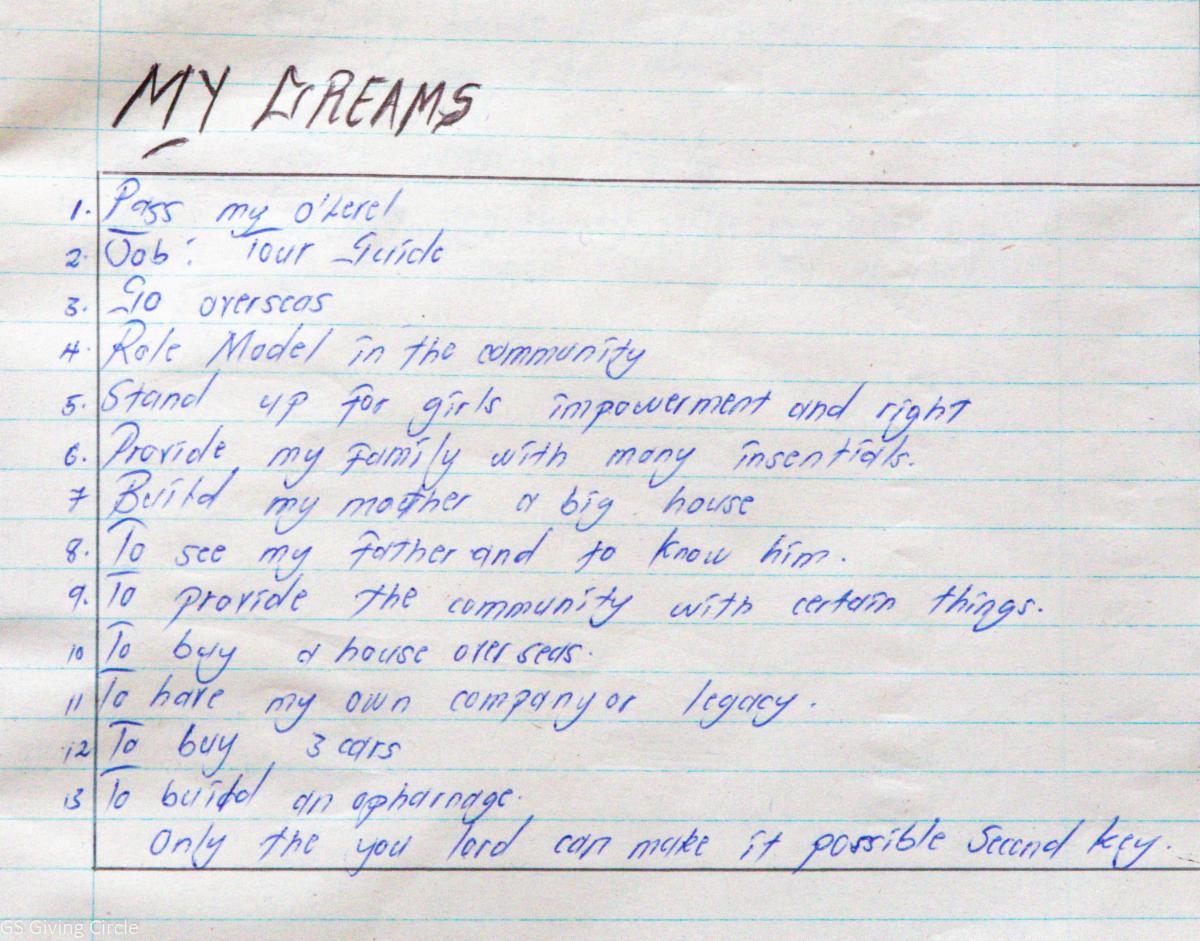 MY DREAMS
1. Pass my O'Level
2. Job: Tour Guide
3. Go overseas
4. Role Model in the community
5. Stand up for girls impowerment and right
6. Provide my family with many insentials.
7 Build my mother a big house
8. To see my father and to know him.
9. To provide the community with certain things.
10 To buy a house overseas.
11 To have my own company or legacy.
12 To buy 3 cars
13 To build an opharnage.
Only the you lord can make it possible Second key.
GS Giving Circle